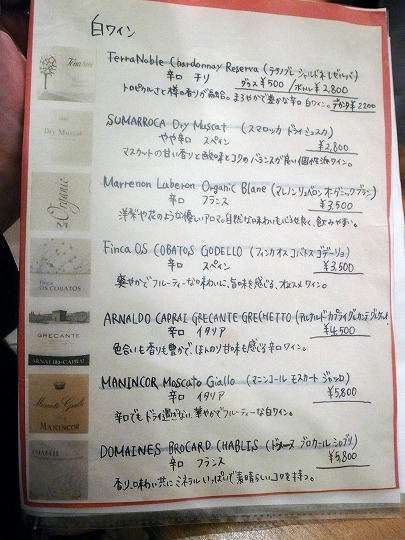 白ワイン
TerraNoble Chardonnay Reserva (テラノブレ シャルドネ レゼルバ)
辛口 チリ グラス¥500/ボトル¥2,800
トロピカルさと樽の香りが融合。まろやかで豊かな辛口白ワイン。デカンタ¥2200
Dry Muscat
SUMARROCA Dry Muscat (スマロッカ ドライミュスカ)
やや辛口 スペイン ¥2,800
マスカットの甘い香りと酸味とコクのバランスが良い個性派ワイン。
Organic
Marrenon Luberon Organic Blanc (マレノン リュベロン オーガニックブラン)
辛口 フランス ¥3,500
洋梨や花のような優しいアロマ。自然な味わいも心地良く、飲みやすい。
Finca OS COBATOS GODELLO (フィンカ オス コバトス ゴデーリョ)
辛口 スペイン ¥3,500
爽やかでフルーティーな味わいに、旨味を感じる、オススメワイン。
Finca
OS COBATOS
ARNALDO CAPRAI GRECANTE GRECHETTO (アルナルド カプライ グレカンテ グレケット)
辛口 イタリア ¥4,500
色合いも香りも豊かで、ほんのり甘味も感じる辛口ワイン。
GRECANTE
ARNALDO-CAPRAI
MANINCOR Moscato Giallo (マニンコール モスカート ジャッロ)
辛口 イタリア ¥5,800
辛口でもドライ過ぎない、華やかでフルーティーな白ワイン。
Moscato Giallo
MANINCOR
DOMAINES BROCARD CHABLIS (ドメーヌ ブロカール シャブリ)
辛口 フランス ¥5,800
香り、味わい共にミネラルいっぱいで素晴らしいコクを持つ。
CHABLIS